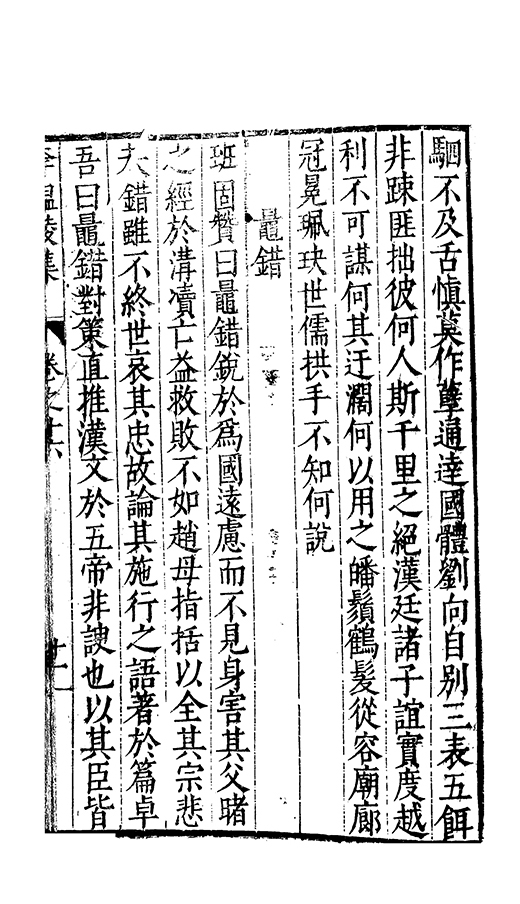 駟不及舌慎莫作孽通達國體劉向自別三表五餌
非踈匪拙彼何人斯千里之絕漢廷諸子誼實度越
利不可謀何其迂濶何以用之皤鬚鶴髮從容廟廊
冠冕珮玦世儒拱手不知何說
鼂錯
班固贊曰鼂錯銳於為國遠慮而不見身害其父睹
之經於溝瀆亡益救敗不如趙母指括以全其宗悲
夫錯雖不終世哀其忠故論其施行之語著於篇卓
吾曰鼂錯對策直推漢文於五帝非諛也以其臣皆
李溫陵集 卷之十六 廿一